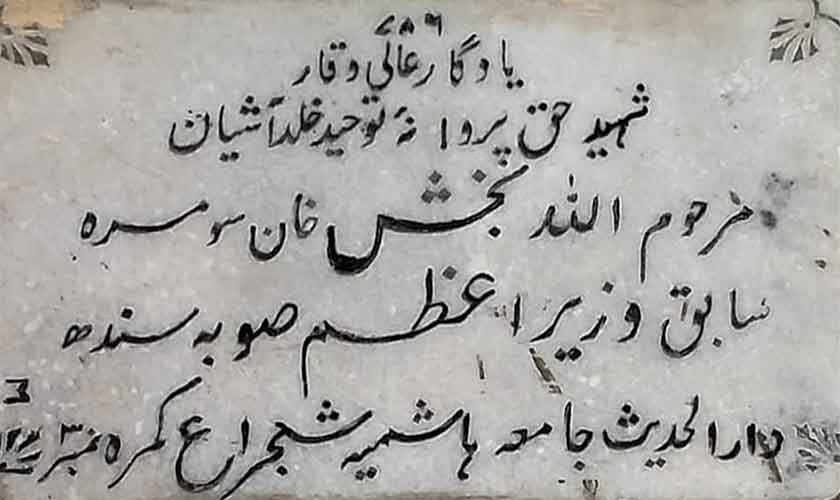 ۷۸۶
یادگار عالی وقار
شہید حق پروانۂ توحید خلد آشیان
مرحوم اللہ بخش خان سومرہ
سابق وزیر اعظم صوبہ سندھ
دار الحدیث جامعہ ہاشمیہ شجراع کمرہ نمبر ۳